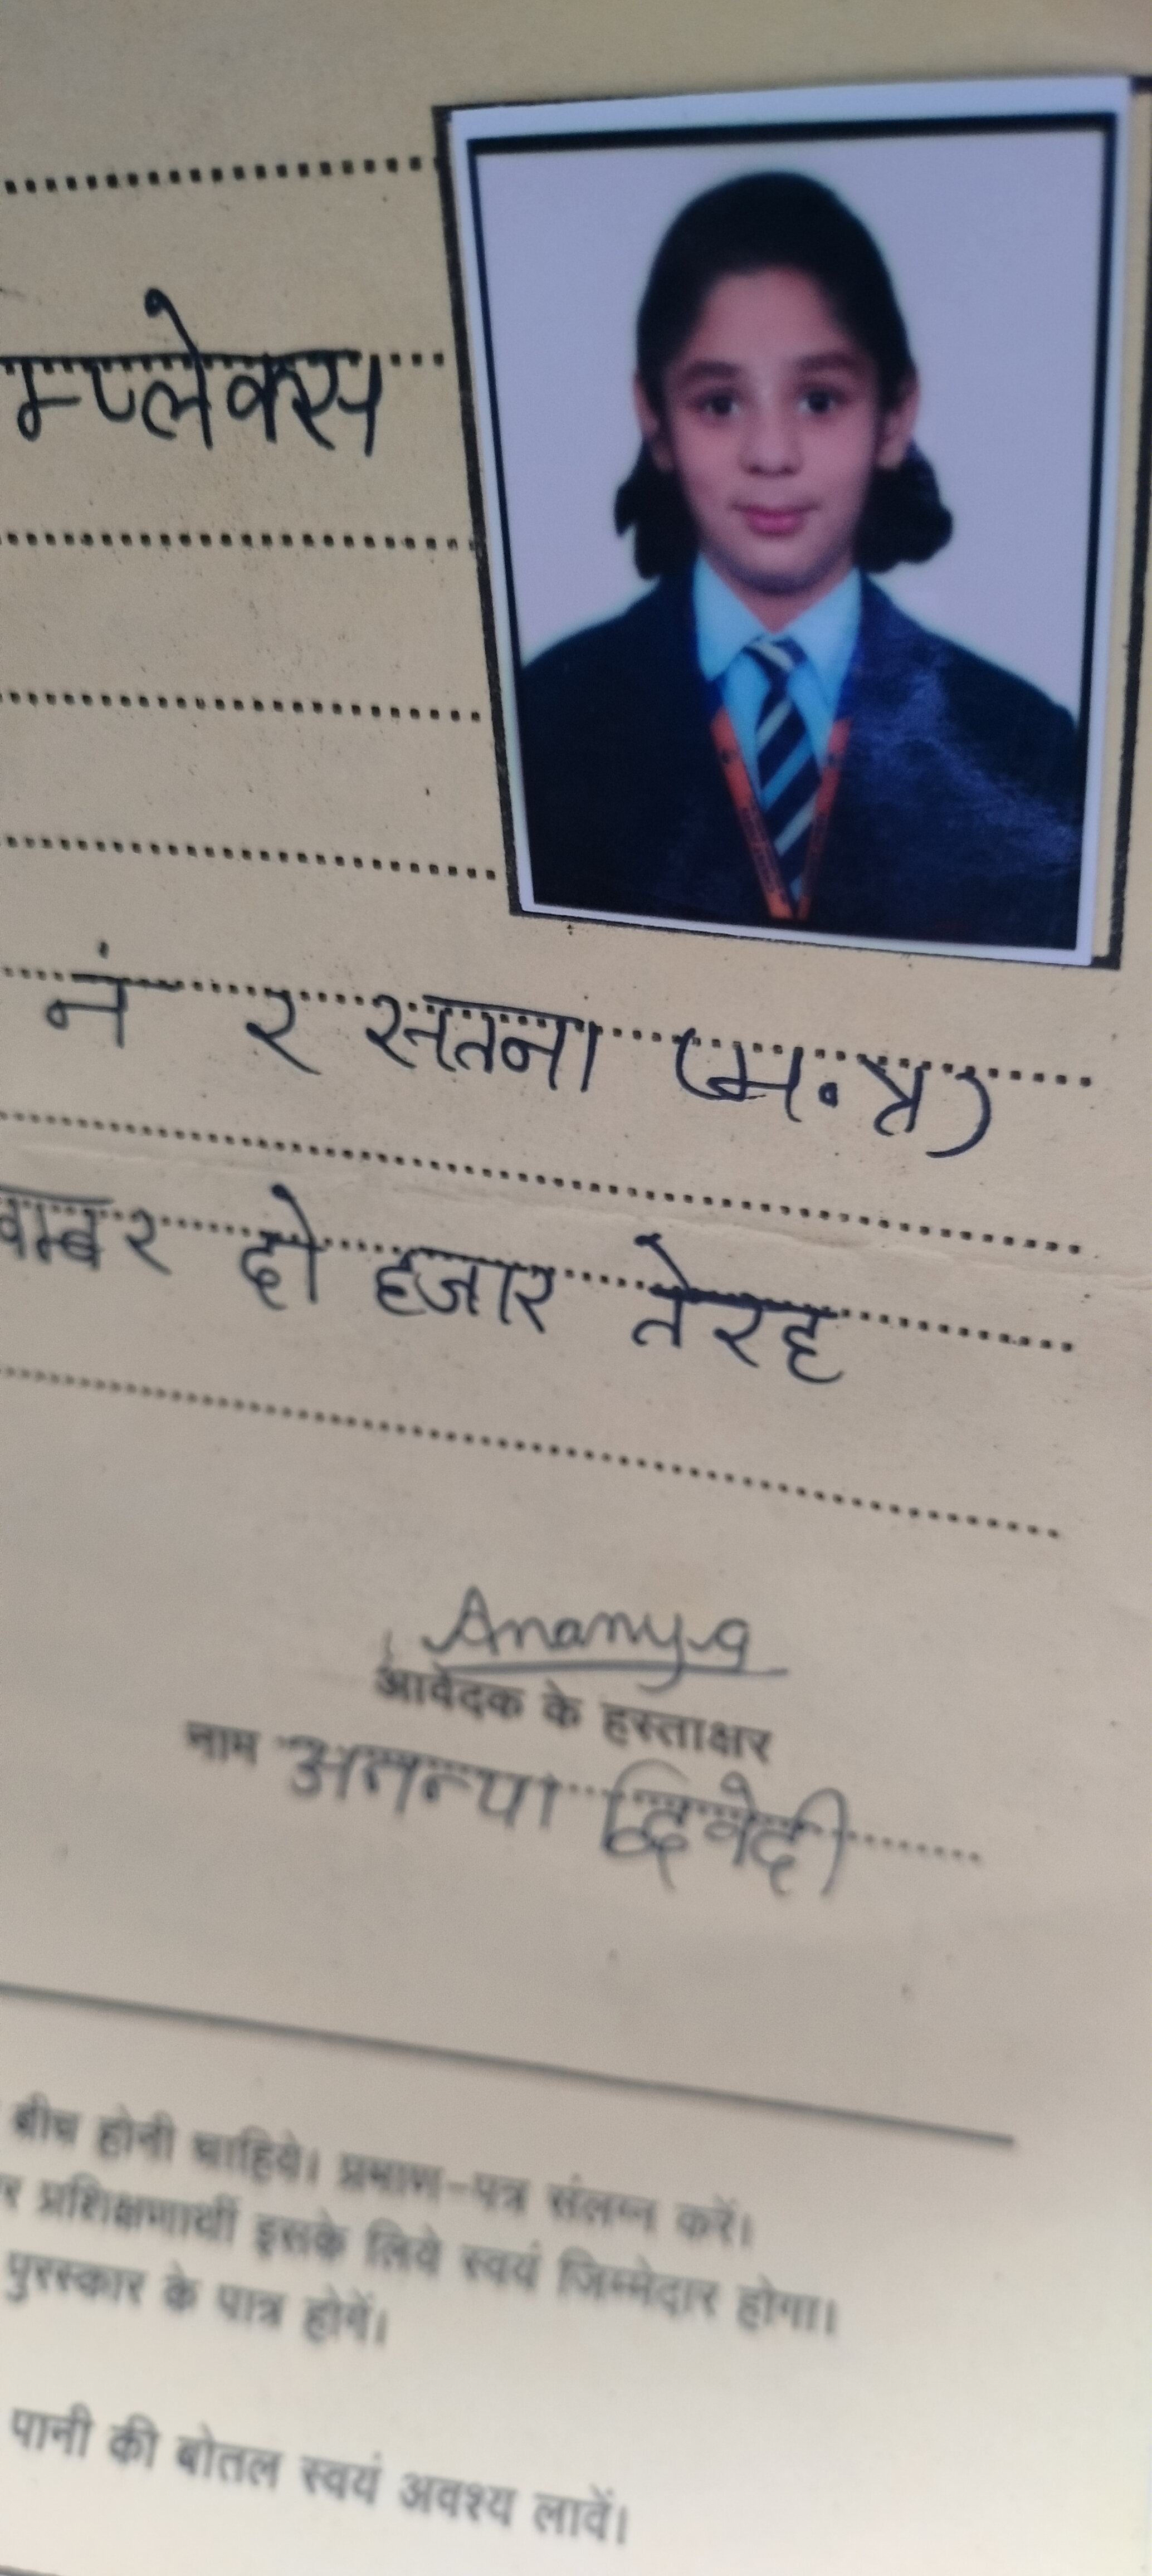 म्प्लेक्स
नं २ सतना (म.प्र)
वम्बर दो हजार तेरह
Ananya
आवेदक के हस्ताक्षर
नाम अनन्या द्विवेदी
बीच होनी चाहिये। प्रमाण-पत्र संलग्न करें।
र प्रशिक्षणार्थी इसके लिये स्वयं जिम्मेदार होगा।
पुरस्कार के पात्र होगें।
पानी की बोतल स्वयं अवश्य लावें।